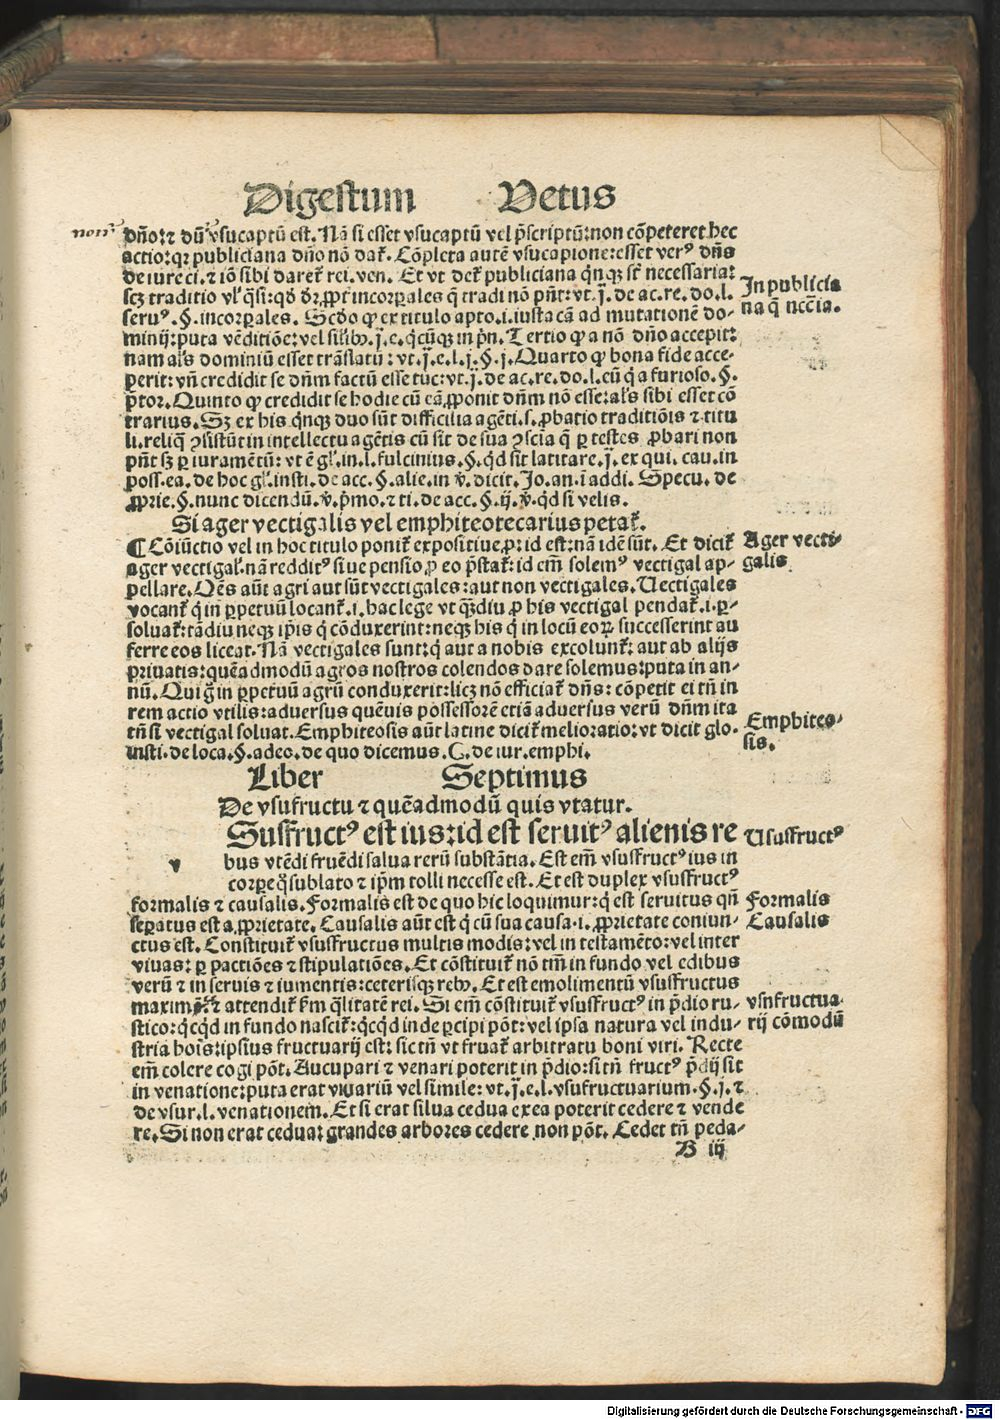 Digestum Vetus
non
dño: ⁊ dũ vsucaptũ est. Nã si esset vsucaptũ vel p̃scriptũ: non cõpeteret hec
actio: qꝛ publiciana dño nõ dat᷑. Cõpleta autẽ vsucapione: esset verꝰ dñs
de iure ci. ⁊ iõ sibi daret᷑ rei. ven. Et vt det᷑ publiciana q̃nqꝫ st̃ necessaria:
scꝫ traditio vl̛ q̃si: qð dꝛ, ꝓpt̛ incorꝑales q̃ tradi nõ pñt: vt. j̃. de ac. re. do. l.
In publicia
na q̃ nccĩa.
seruꝰ. §. incorꝑales. Scðo ꝙ ex titulo apto. i. iusta cã ad mutationẽ do-
minij: puta vẽditiõe: vel silibꝫ. j̃. e. q̃cũqꝫ in pñ. Tertio ꝙ a nõ dño accepit:
nam als̛ dominiũ esset trãslatũ: vt. j̃. e. l. j. §. j. Quarto ꝙ bona fide acce-
perit: vñ credidit se dñm factũ esse tũc: vt. j̃. de ac. re. do. l. cũ q̃ a furioso. §.
p̃tor. Quinto ꝙ credidit se hodie cũ eã ꝓponit dñm nõ esse: als̛ sibi esset cõ
trarius. Sꝫ ex his q̃nqꝫ duo sũt difficilia agẽti. s. ꝓbatio traditiõis ⁊ titu
li. reliq̃ ꝯsistũt in intellectu agẽtis cũ sit de sua ꝯsciã q̃ ꝑ testes ꝓbari non
pñt sꝫ ꝑ iuramẽtũ: vt ẽ gl̛. in. l. fulcinius. §. qd̛ sit latitare. j̃. ex qui. cau. in
poss. ea. de hoc gl̛. insti. de acc. §. alie. in ꝟ. dicit. Jo. an. ĩ addi. Specu. de
ꝓprie. §. nunc dicendũ. ꝟ. p̃mo. ⁊ ti. de acc. §. ij. ꝟ. qd̛ si velis.
Si ager vectigalis vel emphiteotecarius petat᷑.
¶ Cõiũctio vel in hoc titulo ponit᷑ expositiue, ꝓ: id est: nã idẽ sũt. Et dicit᷑
Ager vecti-
galis.
ager vectigal̛. nã redditꝰ siue pensio ꝓ eo p̃stat᷑: id em̃ solemꝰ vectigal ap-
pellare. Oẽs aũt agri aut sũt vectigales: aut non vectigales. Vectigales
vocant᷑ q̃ in ꝑpetuũ locant᷑. i. hac lege vt q̃ꝫdiu ꝓ his vectigal pendat᷑. i. ꝑ-
soluat᷑: tãdiu neqꝫ ip̃is q̃ cõduxerint: neqꝫ his q̃ in locũ eoꝝ successerint au
ferre eos liceat. Nã vectigales sunt: q̃ aut a nobis excolunt᷑: aut ab alijs
priuatis: quẽadmodũ agros nostros colendos dare solemus: puta in an-
nũ. Qui g̃ in ꝑpetuũ agrũ conduxerit: licꝫ nõ efficiat᷑ dñs: cõpetit ei tñ in
rem actio vtilis: aduersus quẽuis possessorẽ etiã aduersus verũ dñm ita
Emphiteo-
sis.
tñ si vectigal soluat. Emphiteosis aũt latine dicit᷑ melioratio: vt dicit glo.
insti. de loca. §. adeo. de quo dicemus. C. de iur. emphi.
Liber Septimus
De vsufructu ⁊ quẽadmodũ quis vtatur.
v
Susfructꝰ est ius: id est seruitꝰ alienis re
Vsusfructꝰ
bus vtẽdi fruẽdi salua rerũ substãtia. Est em̃ vsusfructꝰ ius in
corꝑe q̃ sublato ⁊ ip̃m tolli necesse est. Et est duplex vsusfructꝰ
formalis ⁊ causalis. Formalis est de quo hic loquimur: q̃ est seruitus qñ
Formalis
separatus est a, ꝓprietate. Causalis aũt est q̃ cũ sua causa. i. ꝓprietate coniun-
Causalis
ctus est. Constituit᷑ vsusfructus multis modis: vel in testamẽto: vel inter
viuas: ꝑ pactiões ⁊ stipulatiões. Et cõstituit᷑ nõ tm̃ in fundo vel edibus
verũ ⁊ in seruis ⁊ iumentis: ceterisqꝫ rebꝫ. Et est emolimentũ vsusfructus
maximũ: ⁊ attendit᷑ ẜm q̃litatẽ rei. Si em̃ cõstituit᷑ vsusfructꝰ in p̃dio ru-
vsufructua
rij cõmodũ
stico: q̃cqd̛ in fundo nascit᷑: q̃cqd̛ inde ꝑcipi põt: vel ipsa natura vel indu-
stria hoĩs: ipsius fructuarij est: sic tñ vt fruat᷑ arbitratu boni viri. Recte
em̃ colere cogi põt. Aucupari ⁊ venari poterit in p̃dio: si tñ fructꝰ p̃dij sit
in venatione: puta erat viuariũ vel simile: vt. j̃. e. l. vsufructuarium. §. j. ⁊
de vsur. l. venationem. Et si erat silua cedua ex ea poterit cedere ⁊ vende
re. Si non erat cedua: grandes arbores cedere non põt. Cedet tñ peda-
B iij
Digitalisierung gefördert durch die Deutsche Forschungsgemeinschaft - DFG